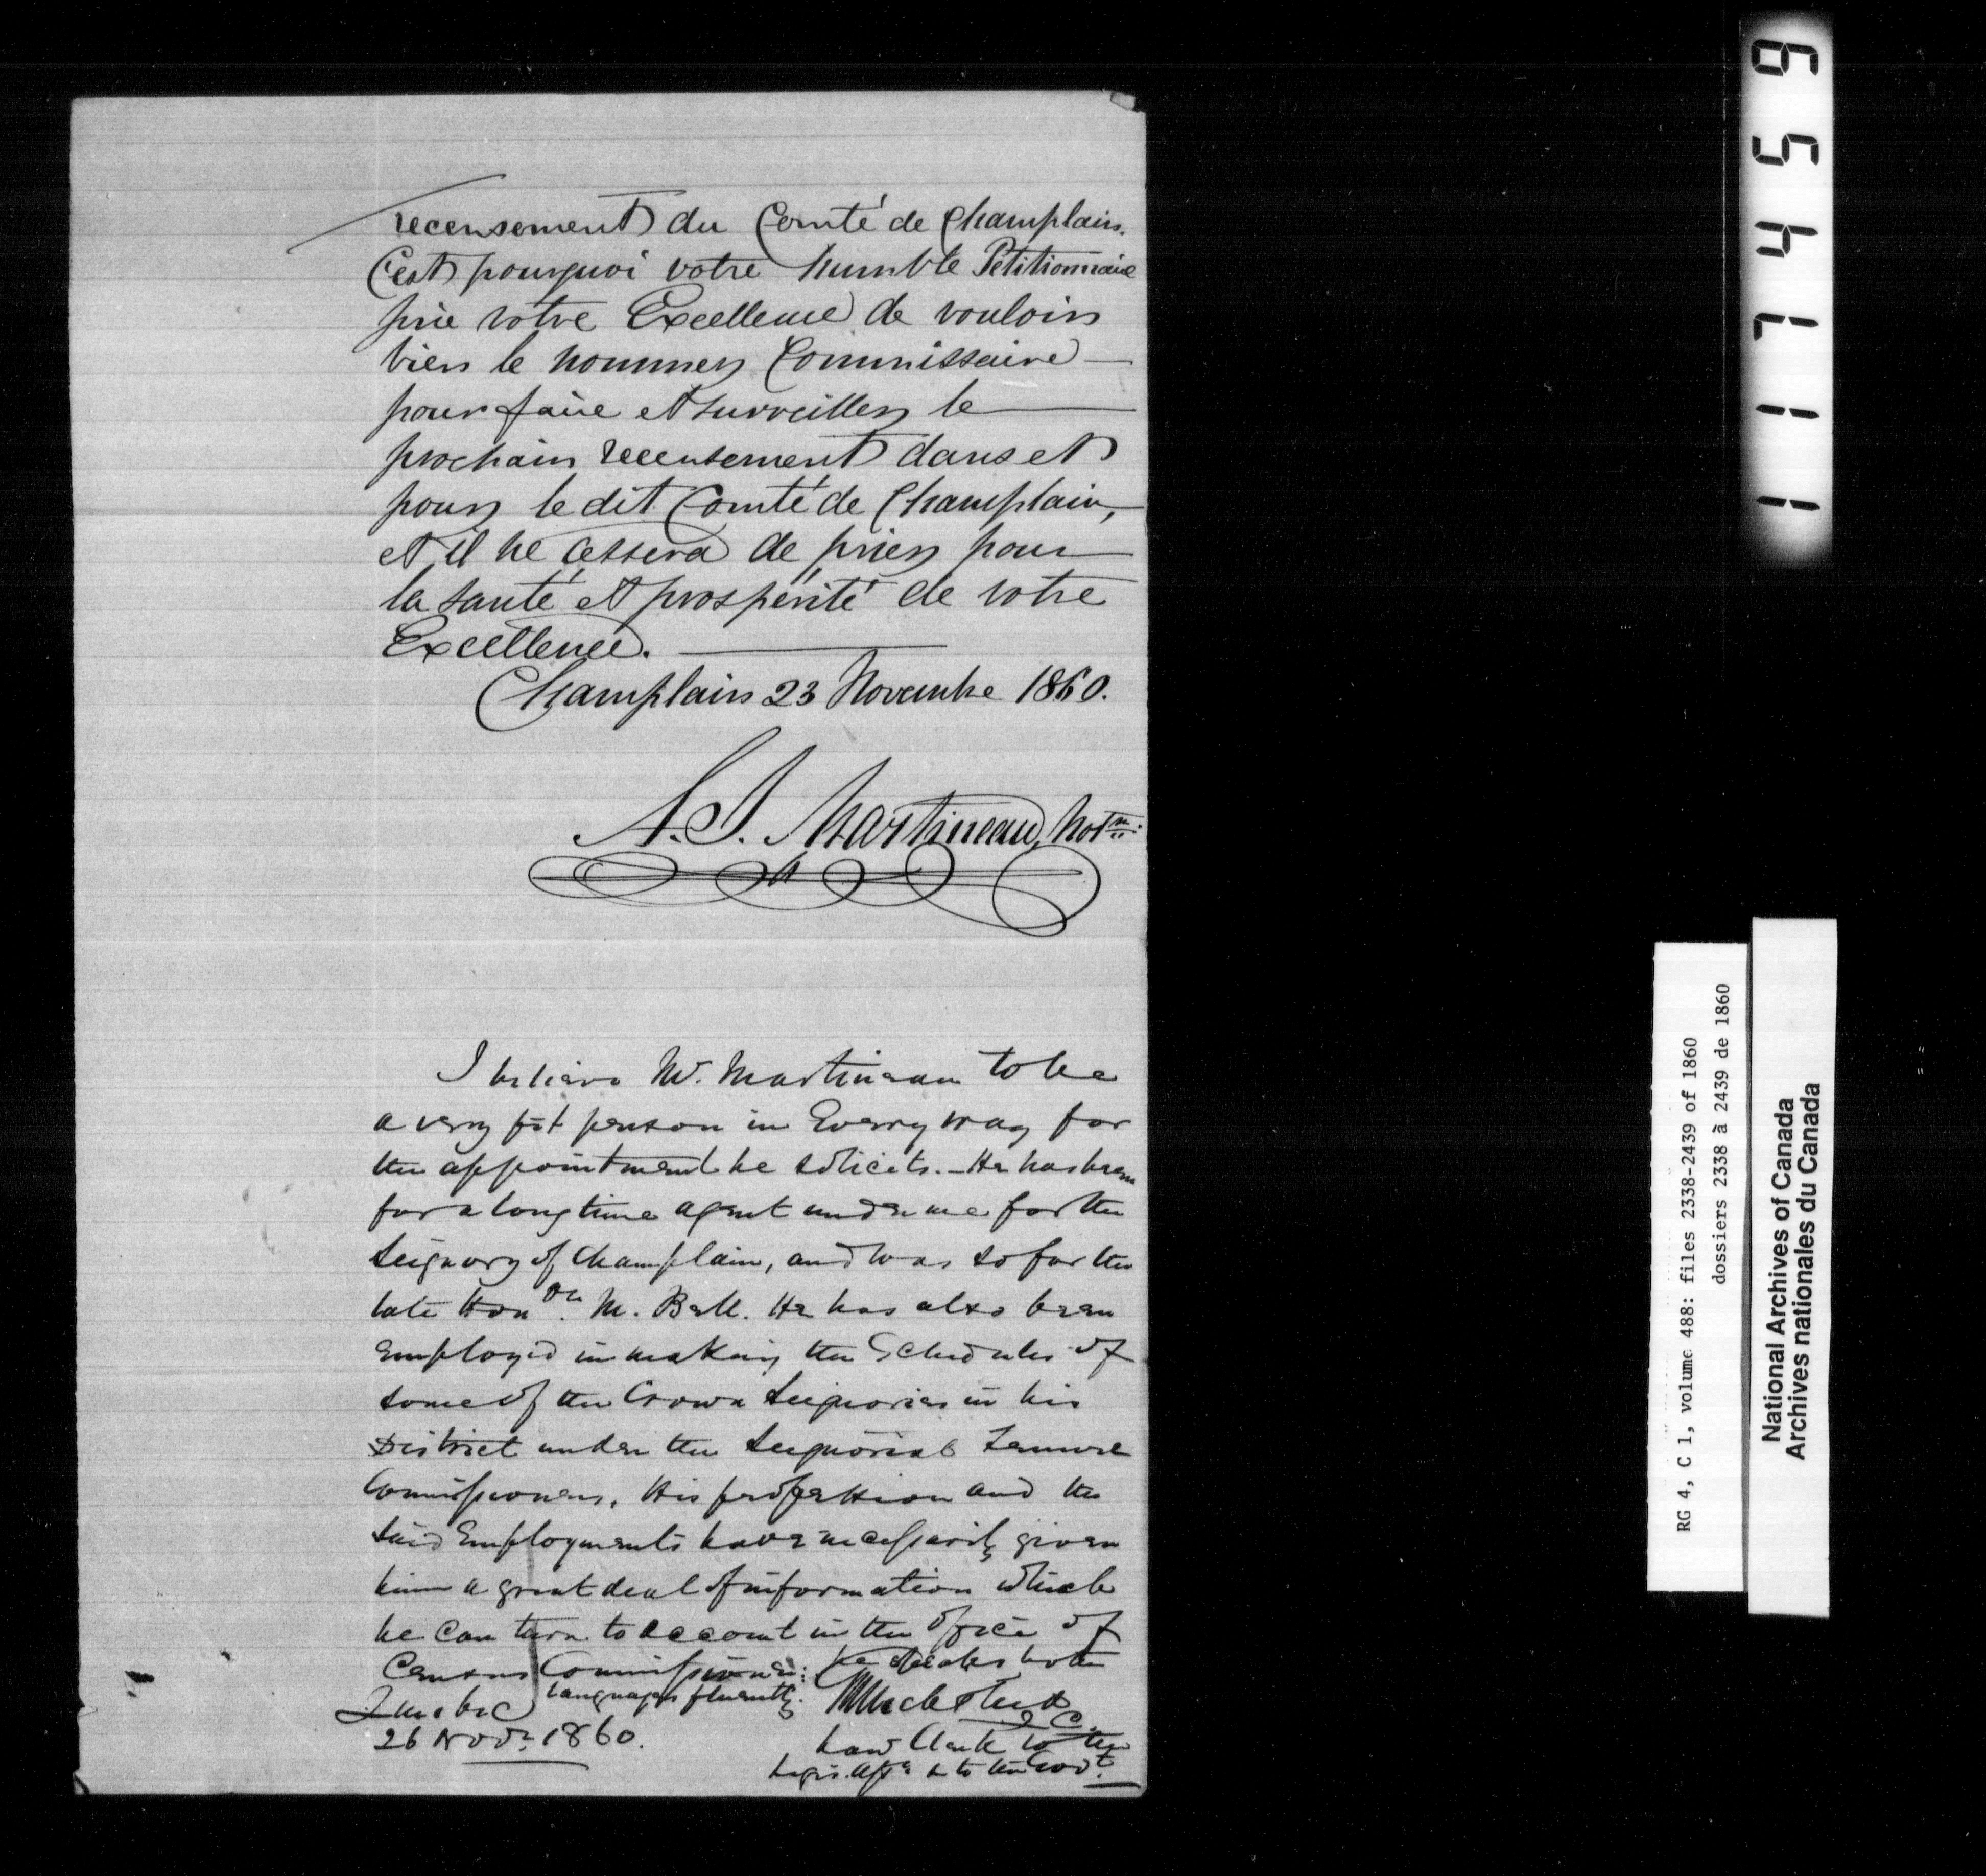 recensement du Comté de Champlain.
C'est pourquoi votre humble Pétitionnaire
prie votre Excellence de vouloir
bien le nommer Commissaire
pour faire et surveiller le
prochain recensement dans et
pour le dit Comté de Champlain,
et il ne cessera de prier pour
la santé et prospérité de votre
Excellence.
Champlain 23 Novembre 1860.
A.S. Martineau, Notre
I believe Mr. Martineau to be
a very fit person in Every way for
the appointment he solicits. - He has been
for a long time agent under me for the
Seignory of Champlain, and was so for the
late Honble. M. Bell. He has also been
Employed in making the Schedules of
some of the Crown Seigniories in his
District under the Seigniorial Tenure
Commissioners. His profession and the
said Employments have necessarily given
him a great deal of information which
he can turn to account in the office of
Census Commissioner: he speaks both
languages fluently.
Quebec
26 Novr. 1860.
Q.C.
Law Clerk to the
Legis. Assn to the Govt.
RG 4, C 1, volume 488: files 2338-2439 of 1860
dossiers 2338 à 2439 de 1860
National Archives of Canada
Archives nationales du Canada
117459